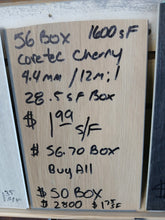 56 Box 1600 SF
Coretec Cherry
4.4mm / 12mil
28.5 SF Box
$ 1.99 S/F
$ 56.70 Box
Buy All
$ 50 Box
$ 2800 $ 1.75 F